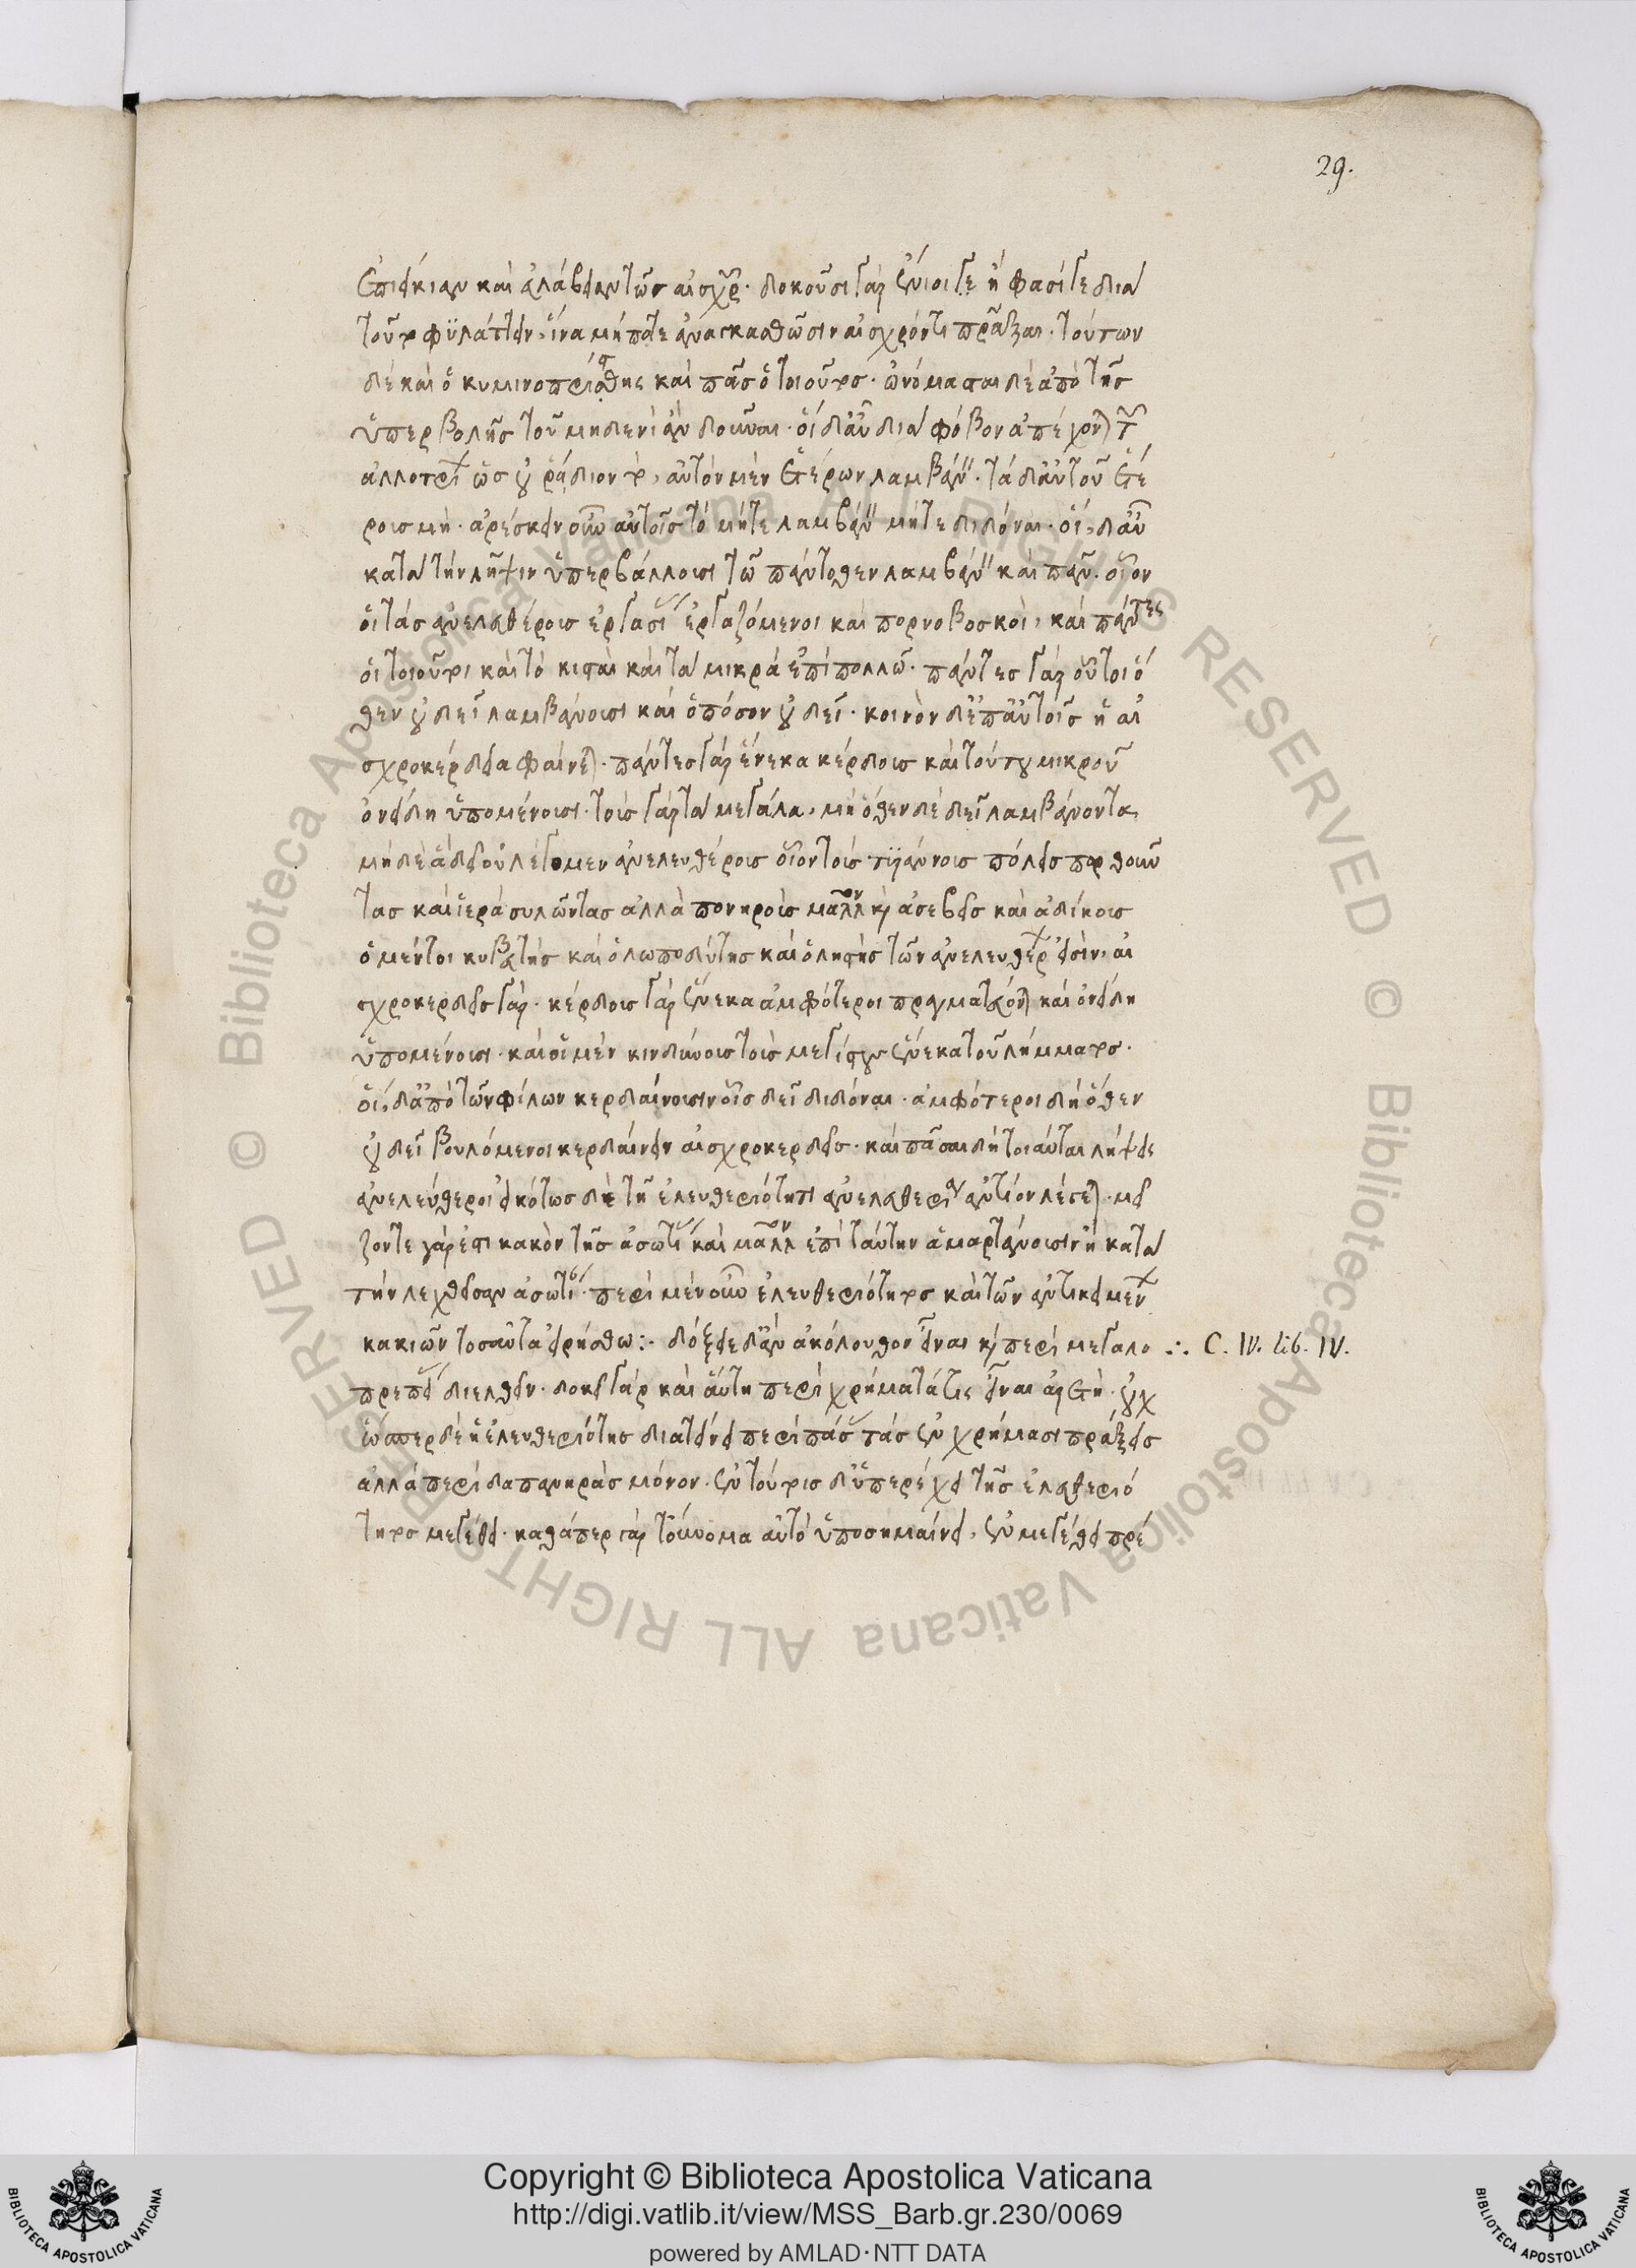 29.
ἐπιείκειαν καὶ εὐλάβειαν τῶν αἰσχρῶν· δοκοῦσι γὰρ ἔνιοί γε ἢ φασί γε διὰ
τοῦτο φυλάττειν, ἵνα μή ποτε ἀναγκασθῶσιν αἰσχρόν τι πρᾶξαι· τούτων
δὲ καὶ ὁ κυμινοπρίστης καὶ πᾶς ὁ τοιοῦτος· ὠνόμασται δὲ ἀπὸ τῆς
ὑπερβολῆς τοῦ μηδενὶ ἂν δοῦναι· οἱ δ' αὖ διὰ φόβον ἀπέχονται τῶν
ἀλλοτρίων ὡς οὐ ῥᾴδιον τὸ, αὐτὸν μὲν ἑτέρων λαμβάνειν· τὰ δ' αὐτοῦ ἑτέ
ρους μή· ἀρέσκειν οὖν αὐτοῖς τό μήτε λαμβάνειν μήτε διδόναι· οἱ, δ' αὖ
κατὰ τὴν λῆψιν ὑπερβάλλουσι τῷ πάντοθεν λαμβάνειν καὶ πᾶν· οἷον
οἱ τὰς ἀνελευθέρους ἐργασίας ἐργαζόμενοι καὶ πορνοβοσκοὶ, καὶ πάντες
οἱ τοιοῦτοι καὶ τοκισταὶ κατὰ μικρὰ ἐπὶ πολλῷ· πάντες γὰρ οὗτοι ὅ
θεν οὐ δεῖ λαμβάνουσι καὶ ὁπόσον οὐ δεῖ· κοινὸν δ' ἐπ' αὐτοῖς ἡ αἰ
σχροκέρδεια φαίνεται· πάντες γὰρ ἕνεκα κέρδους καὶ τούτου μικροῦ
ὀνείδη ὑπομένουσι· τοὺς γὰρ τὰ μεγάλα, μὴ ὅθεν δὲ δεῖ λαμβάνοντας
μηδὲ ἃ δεῖ οὐ λέγομεν ἀνελευθέρους οἷον τοὺς τυράννους πόλεις πορθοῦν
τας καὶ ἱερὰ συλῶντας ἀλλὰ πονηροὺς μᾶλλον καὶ ἀσεβεῖς καὶ ἀδίκους
ὁ μέντοι κυβευτὴς καὶ ὁ λωποδύτης καὶ ὁ λῃστὴς τῶν ἀνελευθέρων εἰσίν, αἰ
σχροκερδεῖς γάρ· κέρδους γὰρ ἕνεκα ἀμφότεροι πραγματεύονται καὶ ὀνείδη
ὑπομένουσι· καὶ οἱ μὲν κινδύνους τοὺς μεγίστους ἕνεκα τοῦ λήμματος·
οἱ, δ' ἀπὸ τῶν φίλων κερδαίνουσιν οἷς δεῖ διδόναι· ἀμφότεροι δὴ ὅθεν
οὐ δεῖ βουλόμενοι κερδαίνειν αἰσχροκερδεῖς· καὶ πᾶσαι δὴ τοιαῦται λήψεις
ἀνελεύθεροι εἰκότως δὲ τῇ ἐλευθεριότητι ἀνελευθερία ἀντίον λέγεται· μεῖ
ζόν τε γάρ ἐστι κακὸν τῆς ἀσωτίας καὶ μᾶλλον ἐπὶ ταύτην ἁμαρτάνουσιν ἢ κατὰ
τὴν λεχθεῖσαν ἀσωτίαν· περὶ μὲν οὖν ἐλευθεριότητος καὶ τῶν ἀντικειμένων
κακιῶν τοσαῦτα εἰρήσθω:· δόξειε δ' ἂν ἀκόλουθον εἶναι καὶ περὶ μεγαλο ∴ C. IV. lib. IV.
πρεπείας διελθεῖν· δοκεῖ γάρ καὶ αὕτη περὶ χρήματά τις εἶναι ἀρετή· οὐχ
ὥσπερ δὲ ἡ ἐλευθεριότης διατείνει περὶ πάσας τάς ἐν χρήμασι πράξεις
ἀλλὰ περὶ δαπανηρὰς μόνον· ἐν τούτοις δ' ὑπερέχει τῆς ἐλευθεριό
τητος μεγέθει· καθάπερ γὰρ τοὔνομα αὐτό ὑποσημαίνει, ἐν μεγέθει πρέ
Copyright © Biblioteca Apostolica Vaticana
http://digi.vatlib.it/view/MSS_Barb.gr.230/0069
powered by AMLAD·NTT DATA
BIBLIOTECA APOSTOLICA VATICANA
BIBLIOTECA APOSTOLICA VATICANA
© Biblioteca Apostolica Vaticana ALL RIGHTS RESERVED
© Biblioteca Apostolica Vaticana ALL RIGHTS RESERVED